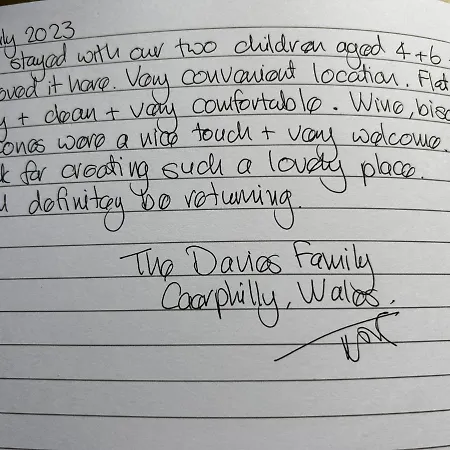 ly 2023
stayed with our two children aged 4+6.
oved it here. Very convenient location. Flat
y + clean + very comfortable. Wine, bisc
ones were a nice touch + very welcome.
k for creating such a lovely place.
l definitey be returning.
The Davies Family
Caerphilly, Wales.